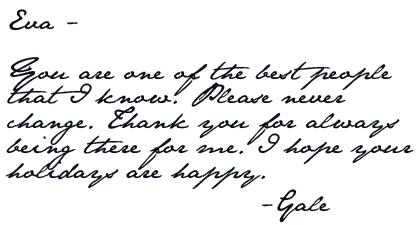 Eva -
You are one of the best people
that I know. Please never
change. Thank you for always
being there for me. I hope your
holidays are happy.
-Gale